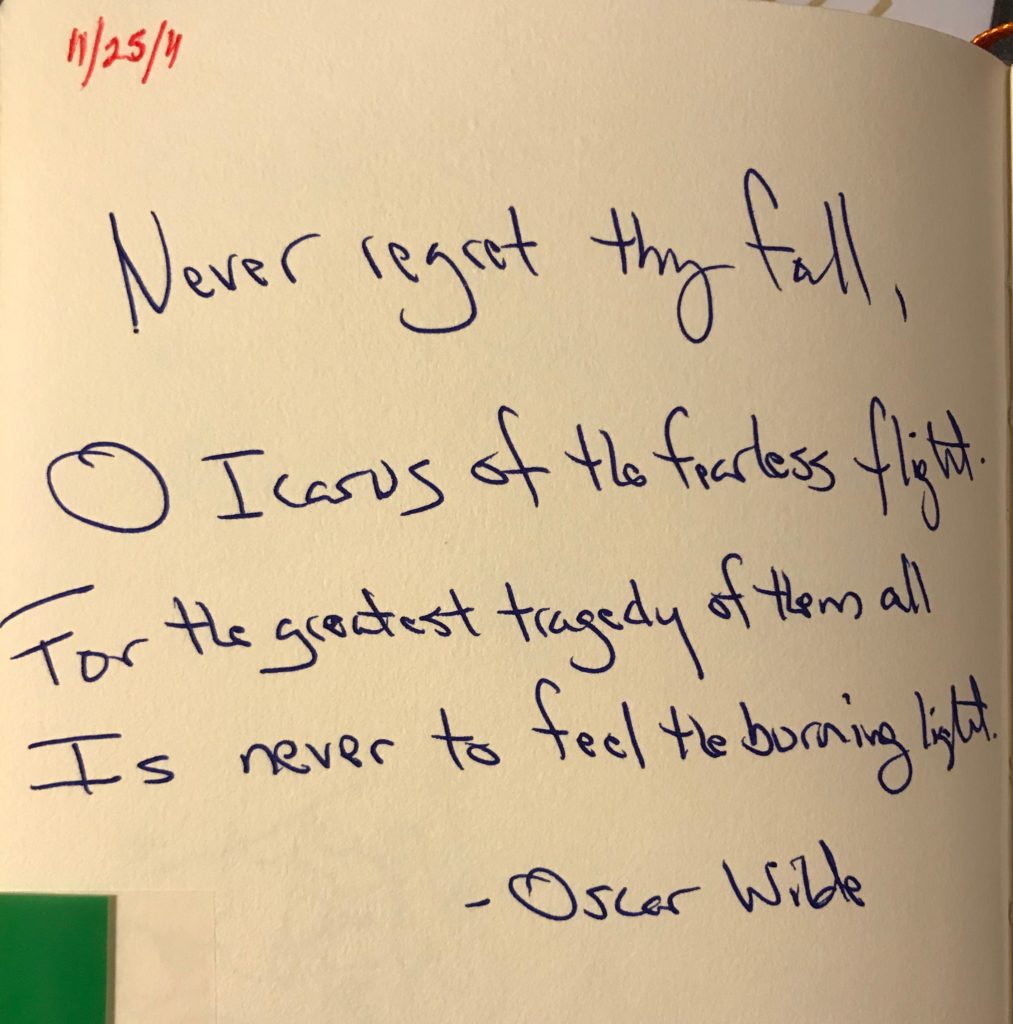 11/25/11
Never regret thy fall,
O Icarus of the fearless flight.
For the greatest tragedy of them all
Is never to feel the burning light.
- Oscar Wilde